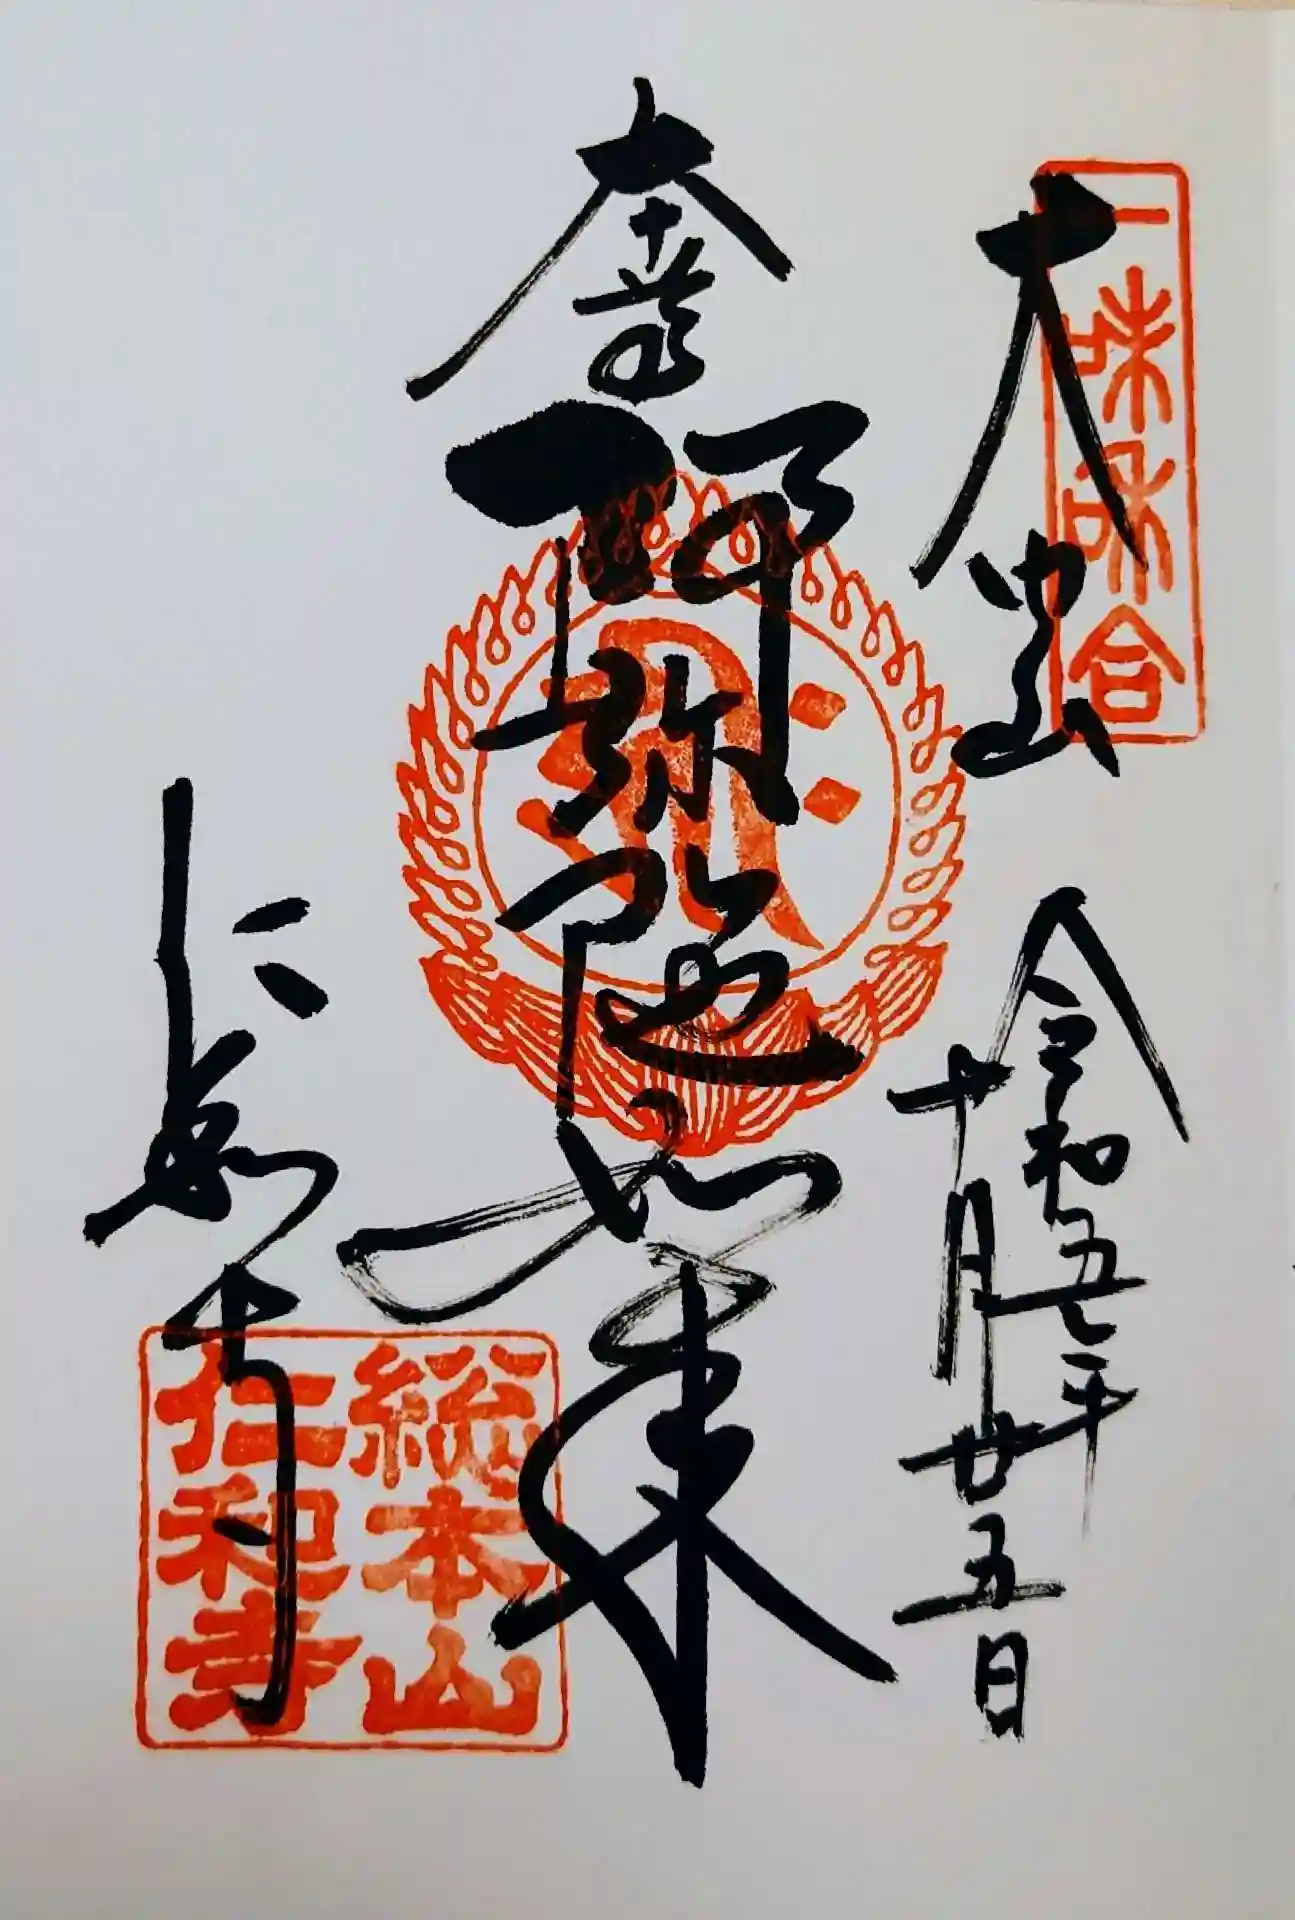 一味和合
大内山
令和五年
十月廿五日
阿弥陀如来
仁和寺
総本山
仁和寺